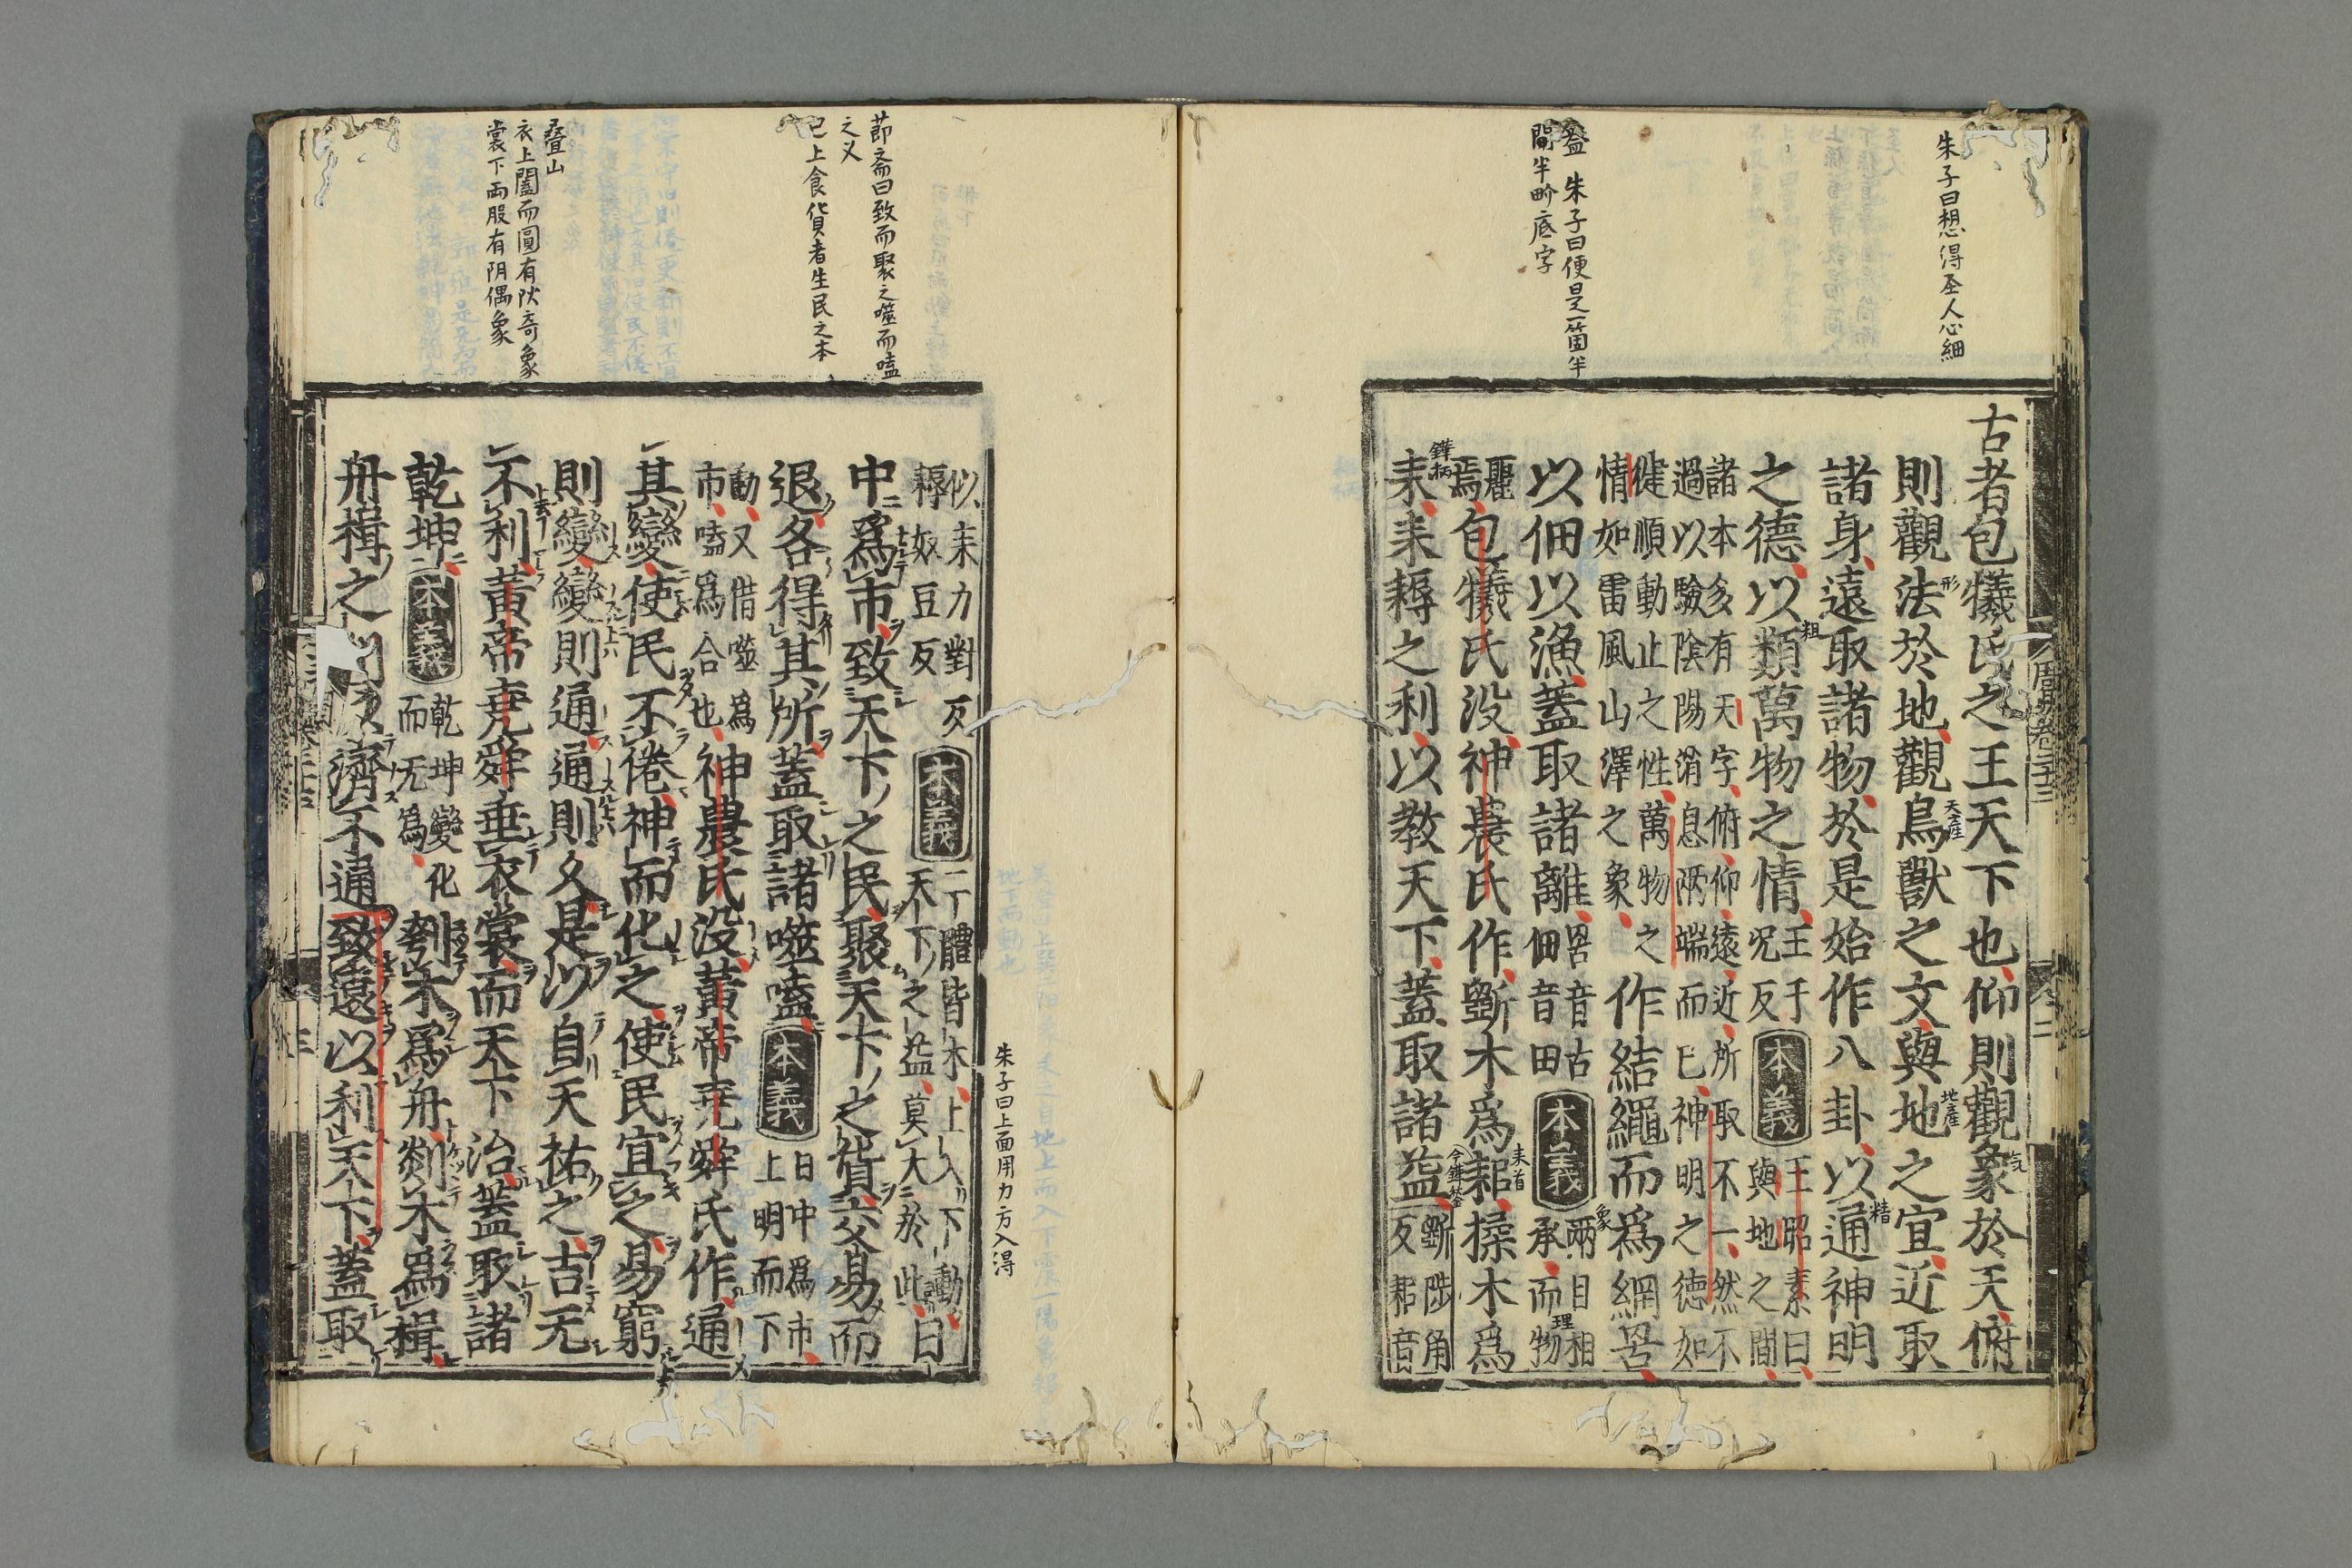 朱子曰想得圣人心細
盖 朱子曰便是一箇半
間半界底字
古者包犧氏之王天下也仰則觀象於天俯
則觀法於地觀鳥獸之文與地之宜近取
諸身遠取諸物於是始作八卦以通神明
之德以類萬物之情
王于
况反
本義
王昭素曰
與地之間
諸本多有天字俯仰遠近所取不一然不
過以驗陰陽消息兩端而已神明之德如
健順動止之性萬物之
情如雷風山澤之象
作結繩而為網罟
以佃以漁蓋取諸離
罟音古
佃音田
本義
兩目相
承而物
麗
焉
包犧氏没神農氏作斲木為耜揉木為
耒耒耨之利以教天下蓋取諸益
斲陟角
反耜音
形
天産
地産
气
精
粗
象
理
耒首
鏵柄
似耒力對反
耨奴豆反
本義
二體皆木上入下動
天下之益莫大於此
日
中爲市致天下之民聚天下之貨交易而
退各得其所蓋取諸噬嗑
本義
日中爲市
上明而下
動又借噬爲
市嗑爲合也
神農氏没黃帝堯舜氏作通
其變使民不倦神而化之使民宜之易窮
則變變則通通則久是以自天祐之吉无
不利黃帝堯舜垂衣裳而天下治蓋取諸
乾坤
本義
乾坤變化
而无爲
刳木爲舟剡木爲楫
舟楫之
濟不通致遠以利天下蓋取
朱子曰上面用力方入得
節斎曰致而聚之噬而嗑
之义
已上食貨者生民之本
疊山
衣上闔而圓有阳奇象
裳下両股有阴偶象